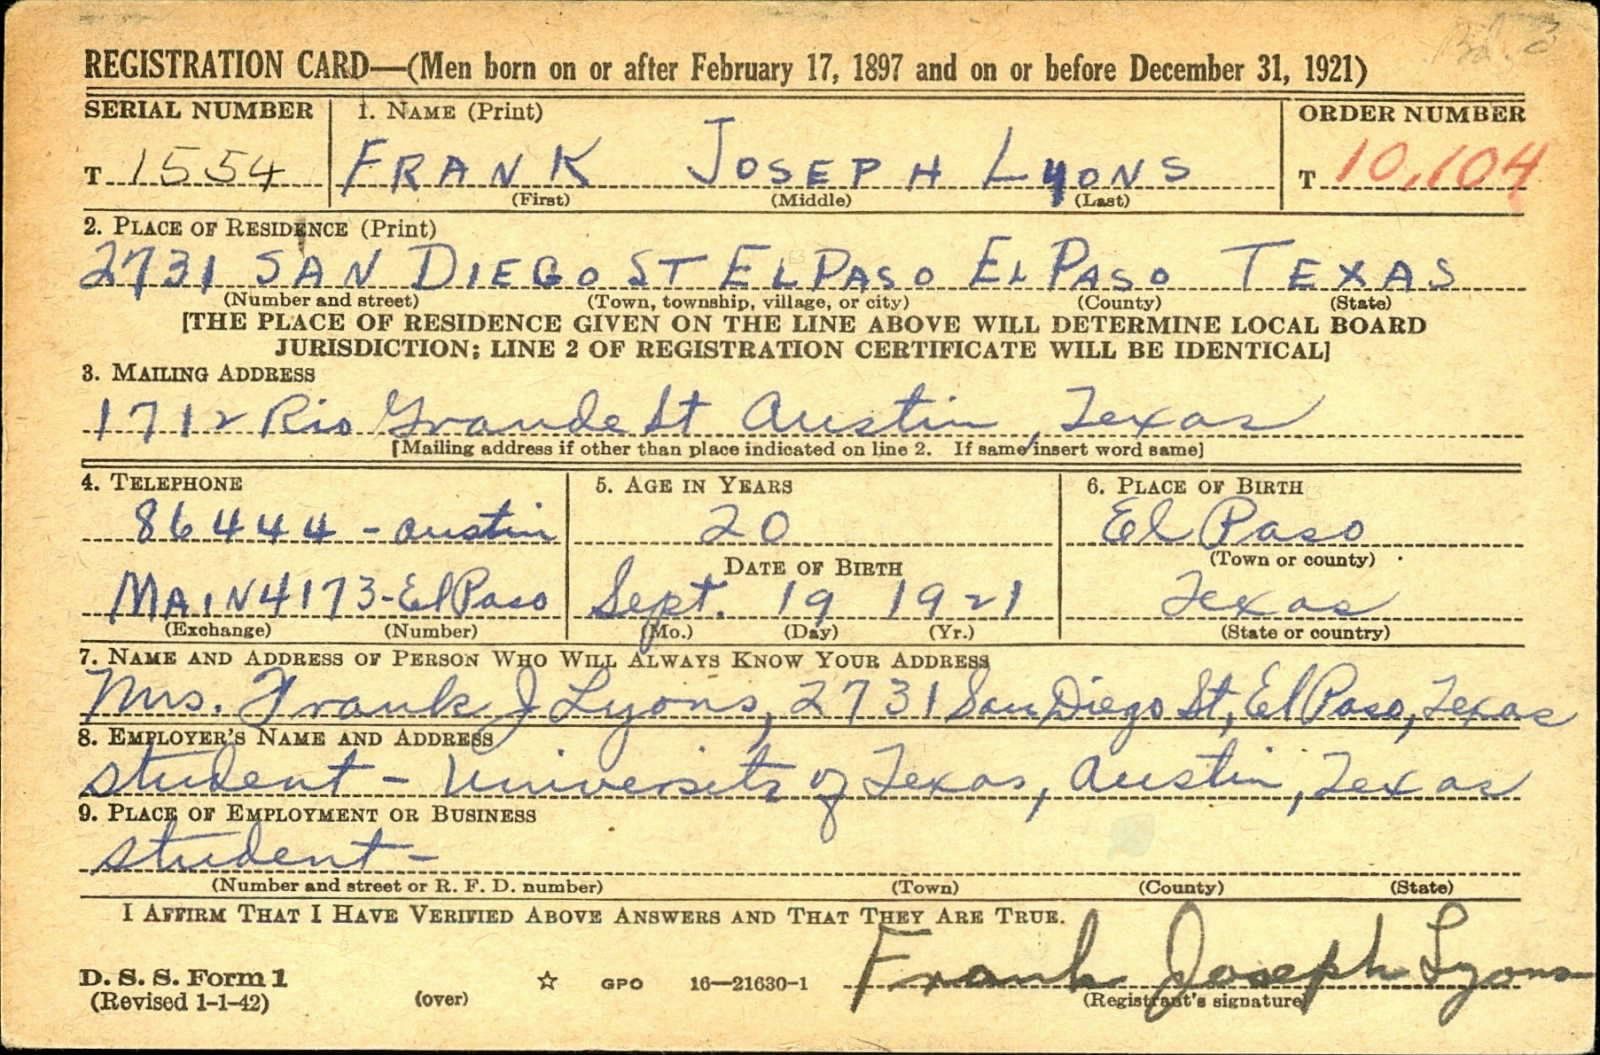 REGISTRATION CARD—(Men born on or after February 17, 1897 and on or before December 31, 1921)
SERIAL NUMBER 1. NAME (Print) ORDER NUMBER
T 1554 FRANK JOSEPH LYONS T 10,104
(First) (Middle) (Last)
2. PLACE OF RESIDENCE (Print)
2731 SAN DIEGO ST EL PASO EL PASO TEXAS
(Number and street) (Town, township, village, or city) (County) (State)
[THE PLACE OF RESIDENCE GIVEN ON THE LINE ABOVE WILL DETERMINE LOCAL BOARD
JURISDICTION; LINE 2 OF REGISTRATION CERTIFICATE WILL BE IDENTICAL]
3. MAILING ADDRESS
1712 Rio Grande St Austin, Texas
[Mailing address if other than place indicated on line 2. If same insert word same]
4. TELEPHONE 5. AGE IN YEARS 6. PLACE OF BIRTH
86444 - Austin 20 El Paso
DATE OF BIRTH (Town or county)
MAIN 4173 - El Paso Sept. 19 1921 Texas
(Exchange) (Number) (Mo.) (Day) (Yr.) (State or country)
7. NAME AND ADDRESS OF PERSON WHO WILL ALWAYS KNOW YOUR ADDRESS
Mrs. Frank J Lyons, 2731 San Diego St, El Paso, Texas
8. EMPLOYER'S NAME AND ADDRESS
student - University of Texas, Austin, Texas
9. PLACE OF EMPLOYMENT OR BUSINESS
student -
(Number and street or R. F. D. number) (Town) (County) (State)
I AFFIRM THAT I HAVE VERIFIED ABOVE ANSWERS AND THAT THEY ARE TRUE.
Frank Joseph Lyons
D. S. S. Form 1 ☆ GPO 16—21630-1
(Revised 1-1-42) (over) (Registrant's signature)